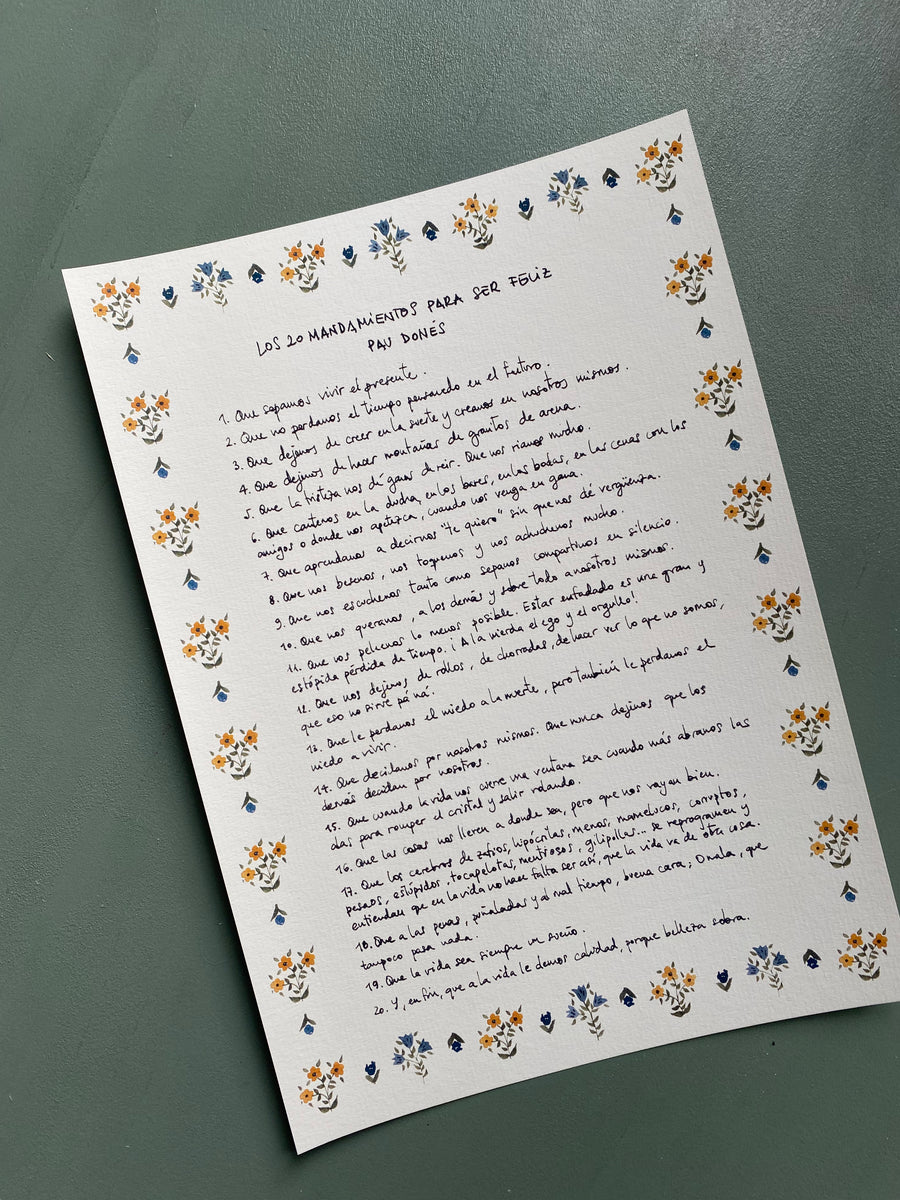 LOS 20 MANDAMIENTOS PARA SER FELIZ
PAU DONÉS
1. Que sepamos vivir el presente.
2. Que no perdamos el tiempo pensando en el futuro.
3. Que dejemos de creer en la suerte y creamos en nosotros mismos.
4. Que dejemos de hacer montañas de granitos de arena.
5. Que la tristeza nos dé ganas de reir. Que nos riamos mucho.
6. Que cantemos en la ducha, en los bares, en las bodas, en las cenas con los
amigos o donde nos apetezca, cuando nos venga en gana.
7. Que aprendamos a decirnos "te quiero" sin que nos dé vergüenza.
8. Que nos besemos, nos toquemos y nos achuchemos mucho.
9. Que nos escuchemos tanto como sepamos compartirnos en silencio.
10. Que nos queramos, a los demás y sobre todo a nosotros mismos.
11. Que nos peleemos lo menos posible. Estar enfadado es una gran y
estúpida pérdida de tiempo. ¡A la mierda el ego y el orgullo!
12. Que nos dejemos de rollos, de chorradas, de hacer ver lo que no somos,
que eso no sirve pá ná.
13. Que le perdamos el miedo a la muerte, pero también le perdamos el
miedo a vivir.
14. Que decidamos por nosotros mismos. Que nunca dejemos que los
demás decidan por nosotros.
15. Que cuando la vida nos cierre una ventana sea cuando más abramos las
alas para romper el cristal y salir volando.
16. Que las cosas nos lleven a donde sea, pero que nos vayan bien.
17. Que los cerebros de zafios, hipócritas, memos, mamelucos, corruptos,
pesaos, estúpidos, tocapelotas, mentirosos, gilipollas... se reprogramen y
entiendan que en la vida no hace falta ser así, que la vida va de otra cosa.
18. Que a las penas, puñaladas y al mal tiempo, buena cara; O nala, que
tampoco pasa nada.
19. Que la vida sea siempre un sueño.
20. Y, en fin, que a la vida le demos calidad, porque belleza sobra.